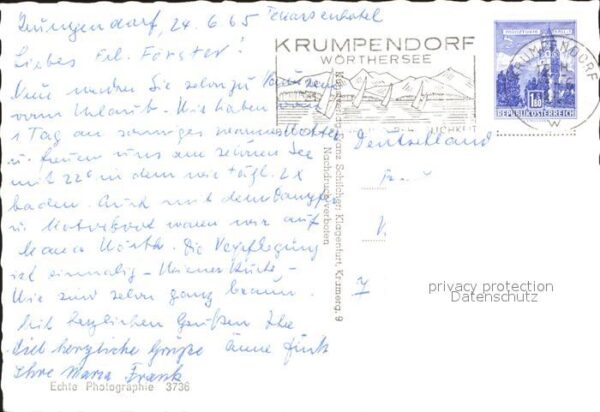 Krumpendorf, 24.6.65
Liebes Frl. Förster!
Nun werden Sie schon zu Hause sein
vom Urlaub. Wir haben vom
1 Tag an sonniges warmes Wetter
u. freuen uns am schönen See
mit 22° in dem wir tägl. 2x
baden. Auch mit dem Dampfer
u. Motorboot waren wir auf
Maria Wörth. Die Verpflegung
ist einmalig - Wiener Küche -
Wir sind schon ganz braun.
Mit herzlichen Grüßen Ihre
Viel herzliche Grüße Änne Fink
Ihre Maria Frank
Echte Photographie 3736
KRUMPENDORF
WÖRTHERSEE
KRUMPENDORF
1.80
REPUBLIK ÖSTERREICH
Deutschland
Klagenfurt, Kranzmerg. 9
Nachdruck verboten
privacy protection
Datenschutz